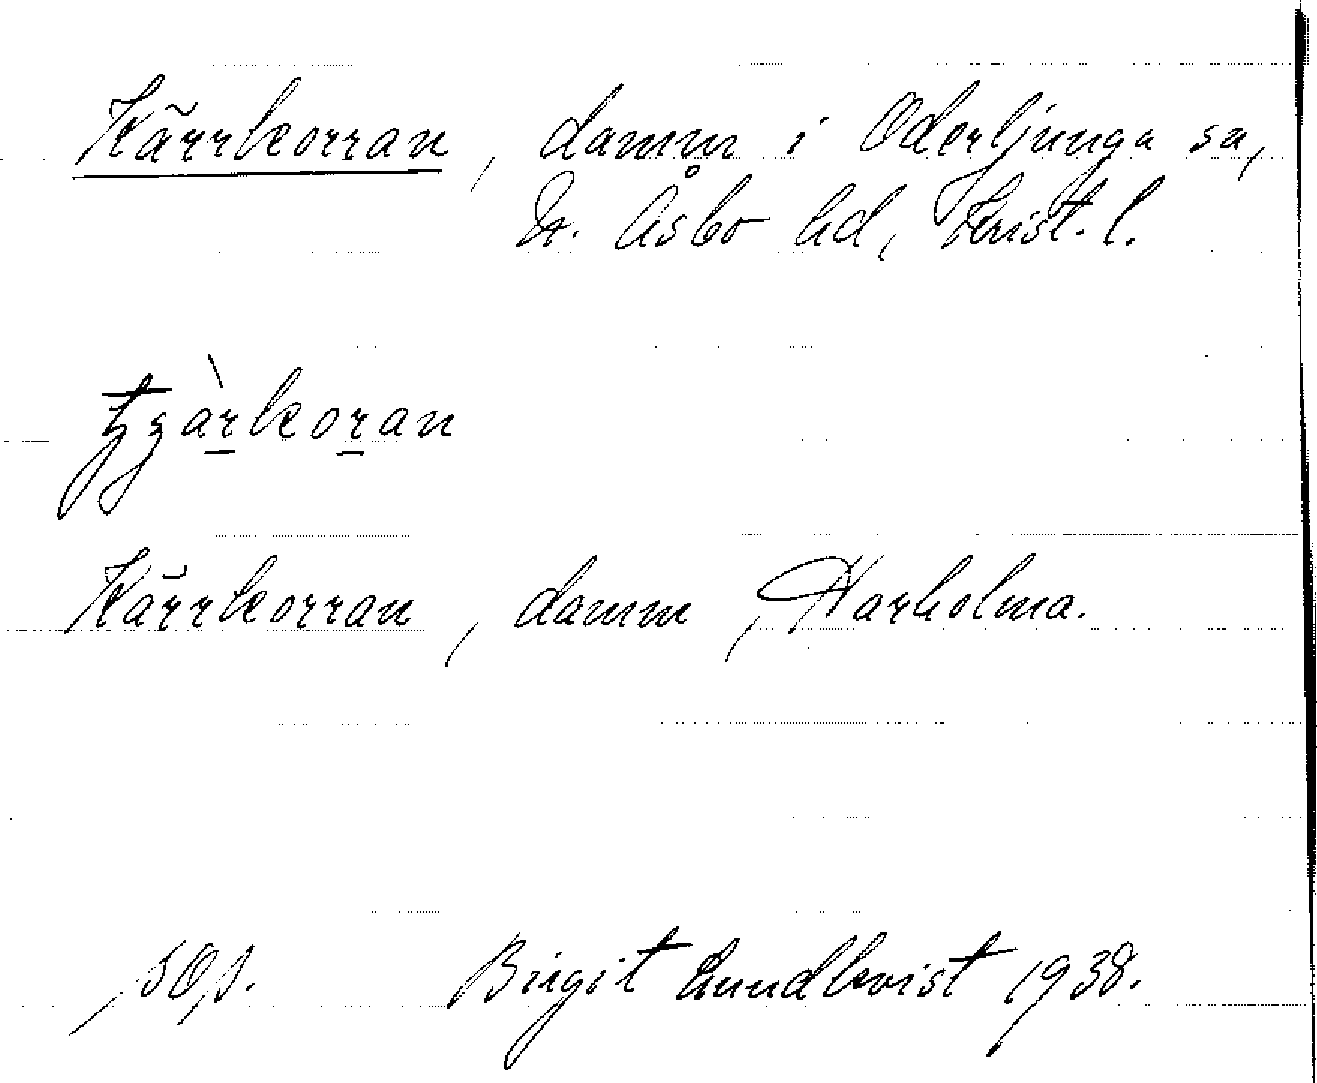 Kärrkorran, damm i Oderljunga sn,
N. Åsbo hd, Krist. l.
Kärrkorran, damm, Harholma.
Birgit Lundkvist 1938.